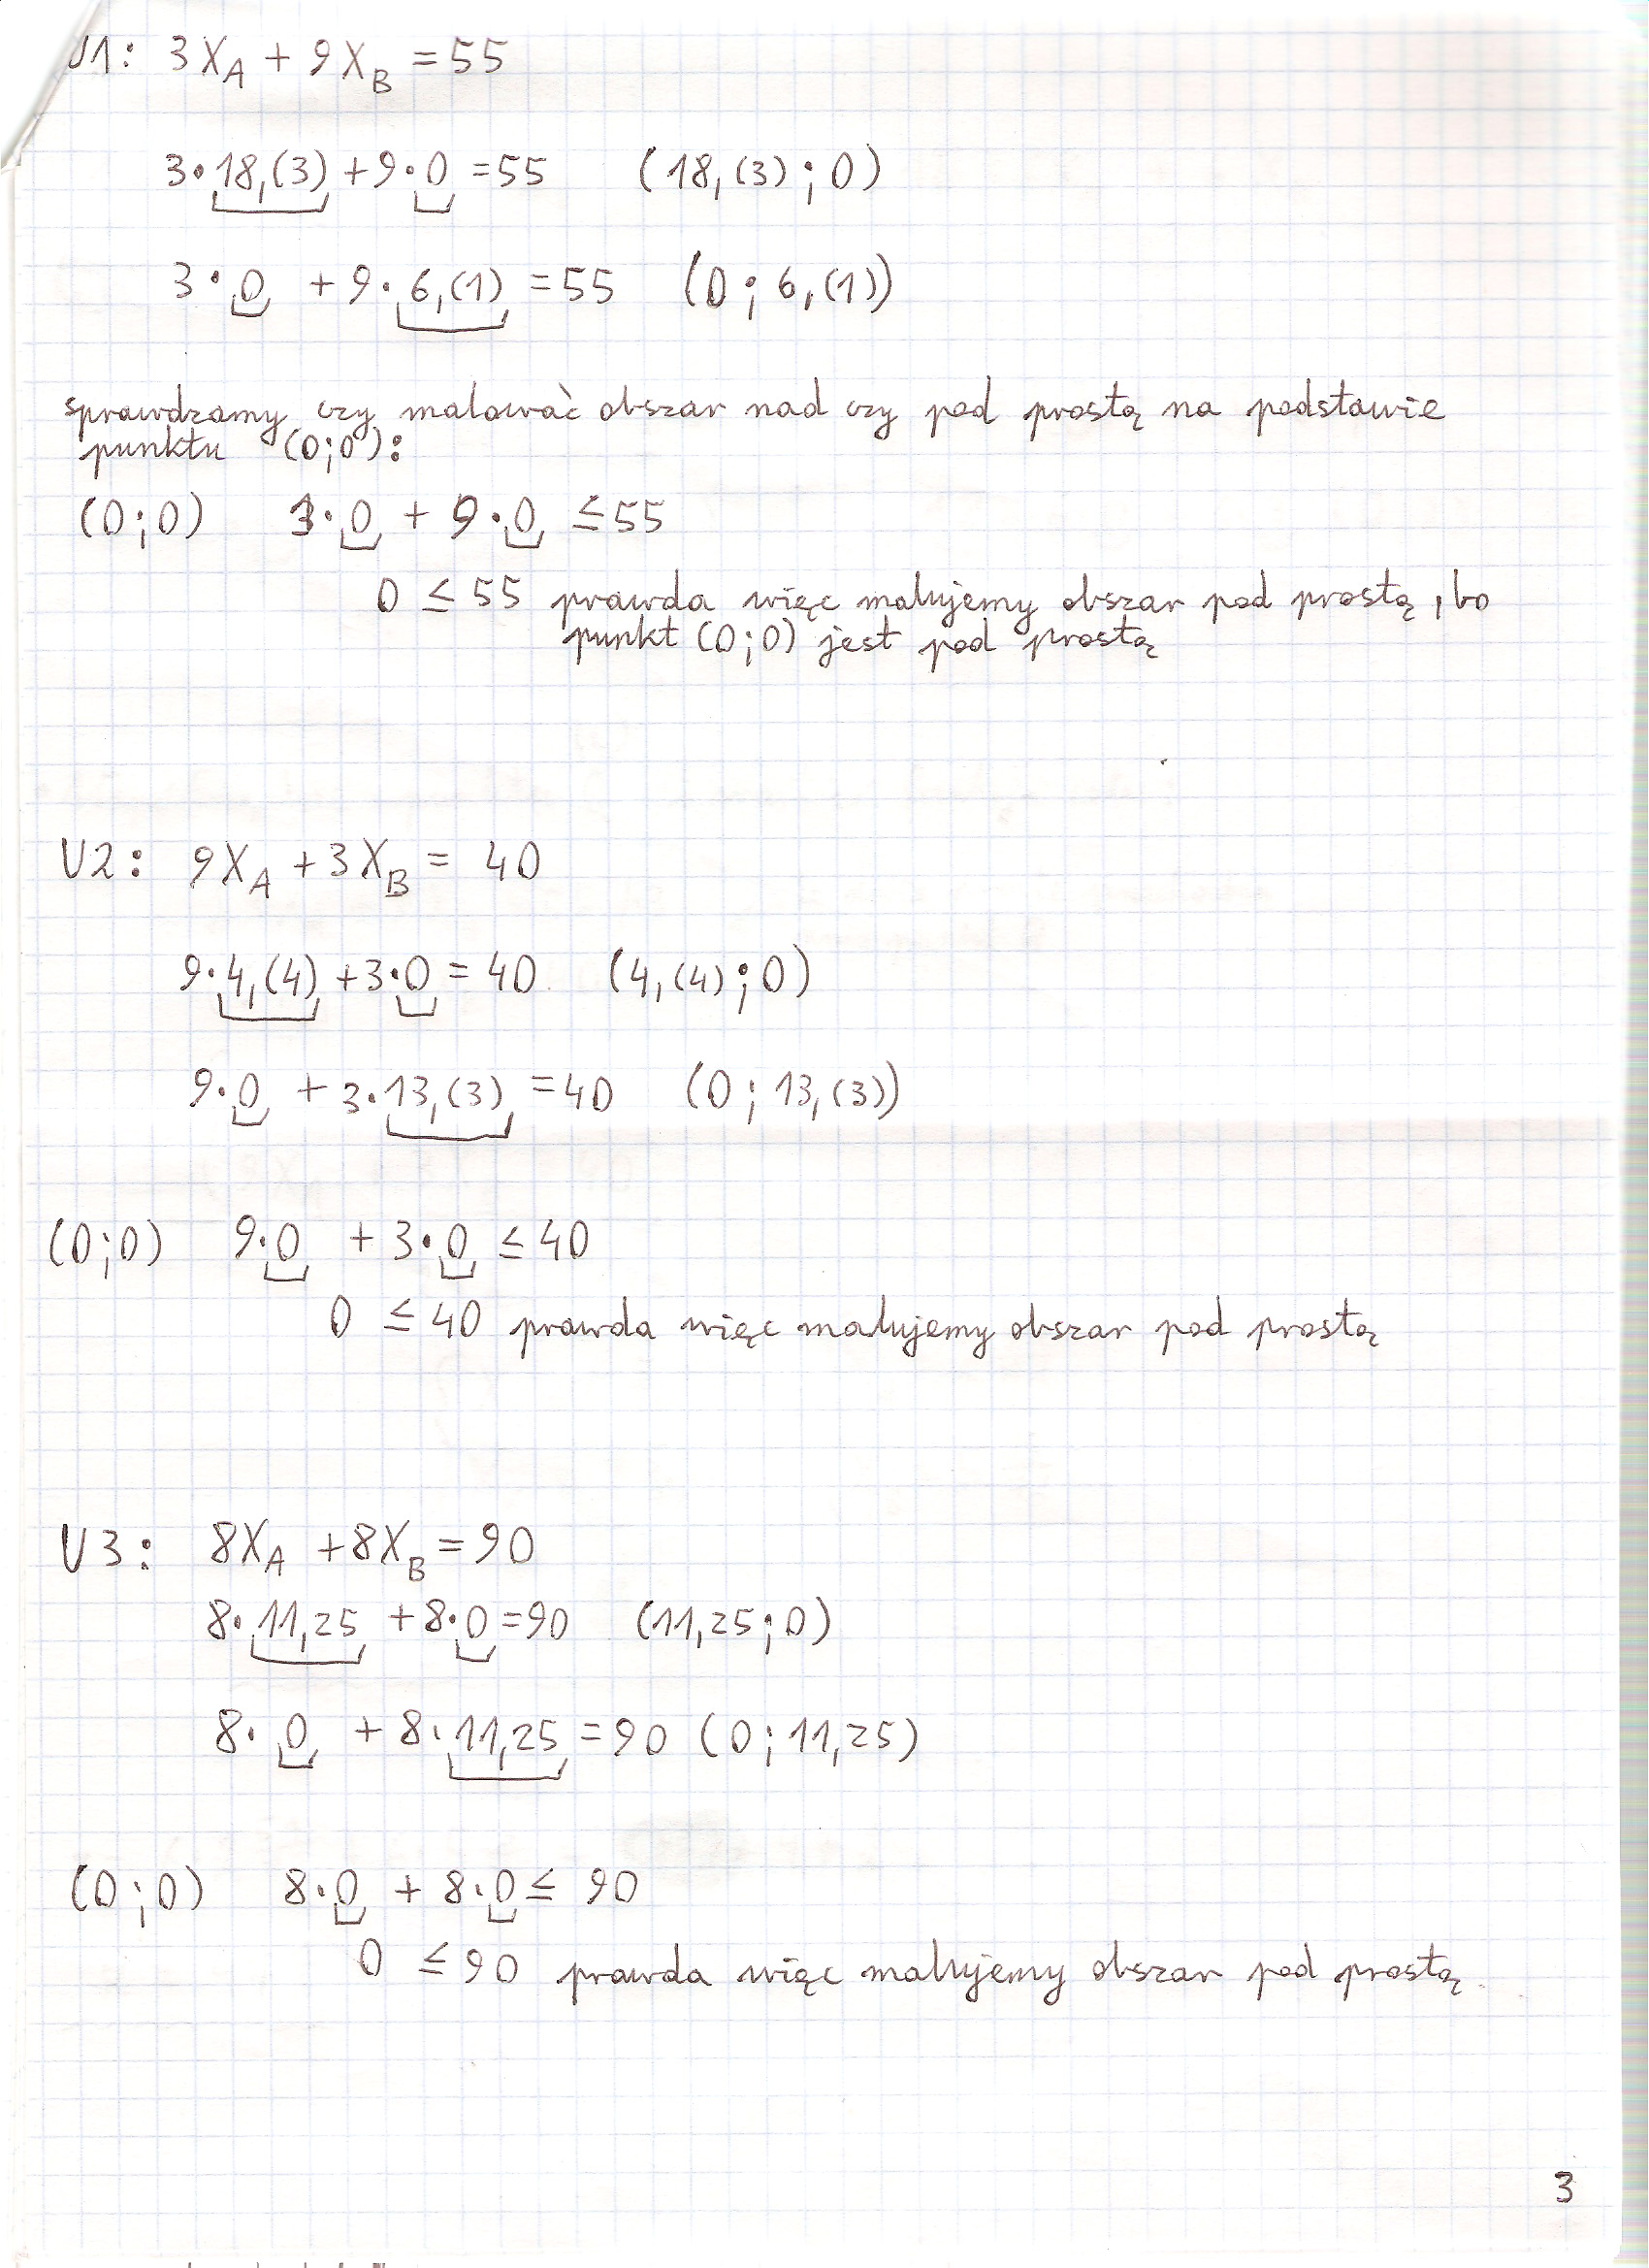 U1: 3X_A + 9X_B = 55
3·18,(3) + 9·0 = 55 (18,(3);0)
3·0 + 9·6,(1) = 55 (0;6,(1))
sprawdzamy czy malować obszar nad czy pod prostą na podstawie
punktu (0;0):
(0;0) 3·0 + 9·0 ≤ 55
0 ≤ 55 prawda więc malujemy obszar pod prostą, bo
punkt (0;0) jest pod prostą
U2: 9X_A + 3X_B = 40
9·4,(4) + 3·0 = 40 (4,(4);0)
9·0 + 3·13,(3) = 40 (0;13,(3))
(0;0) 9·0 + 3·0 ≤ 40
0 ≤ 40 prawda więc malujemy obszar pod prostą
U3: 8X_A + 8X_B = 90
8·11,25 + 8·0 = 90 (11,25;0)
8·0 + 8·11,25 = 90 (0;11,25)
(0;0) 8·0 + 8·0 ≤ 90
0 ≤ 90 prawda więc malujemy obszar pod prostą
3